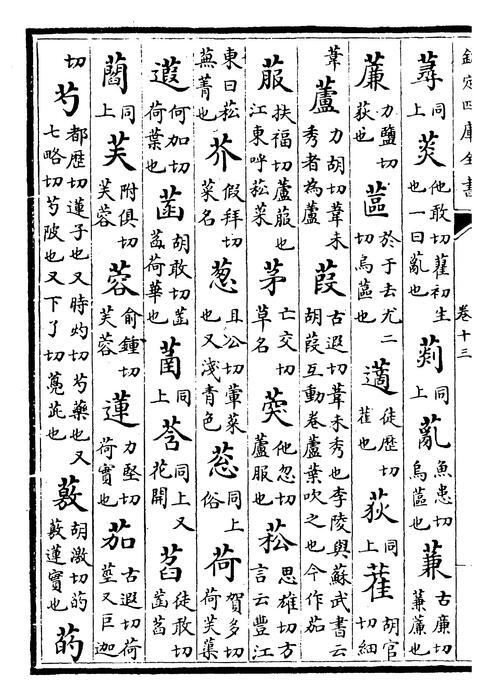 欽定四庫全書
卷十三
蕁同上菼他敢切雚初生也一曰薍也䓹同上薍魚患切烏蓲也蒹古廉切蒹薕也
薕力鹽切荻也蓲於于去尤二切烏蓲也藡徒歷切雚也荻同上萑胡官切細
葦蘆力胡切葦未秀者為蘆葭古遐切葦未秀也李陵與蘇武書云胡葭互動卷蘆葉吹之也今作笳
菔扶福切蘆菔也江東呼菘菜茅亡交切草名葖他忽切蘆服也菘思雄切方言云豐江
東曰菘蕪菁也芥假拜切菜名葱且公切葷菜也又淺青色蔥同上俗荷賀多切荷芙蕖
葭何加切荷葉也菡胡敢切菡萏荷華也䓿同上萏同上又花開萏徒敢切菡萏
藺同上芙附俱切芙蓉蓉俞鍾切芙蓉蓮力堅切荷實也茄古遐切荷莖又巨迦
切芍都歴切蓮子也又時灼切芍藥也又七略切芍陂也又下了切鳧茈也薂胡激切的薂蓮實也菂